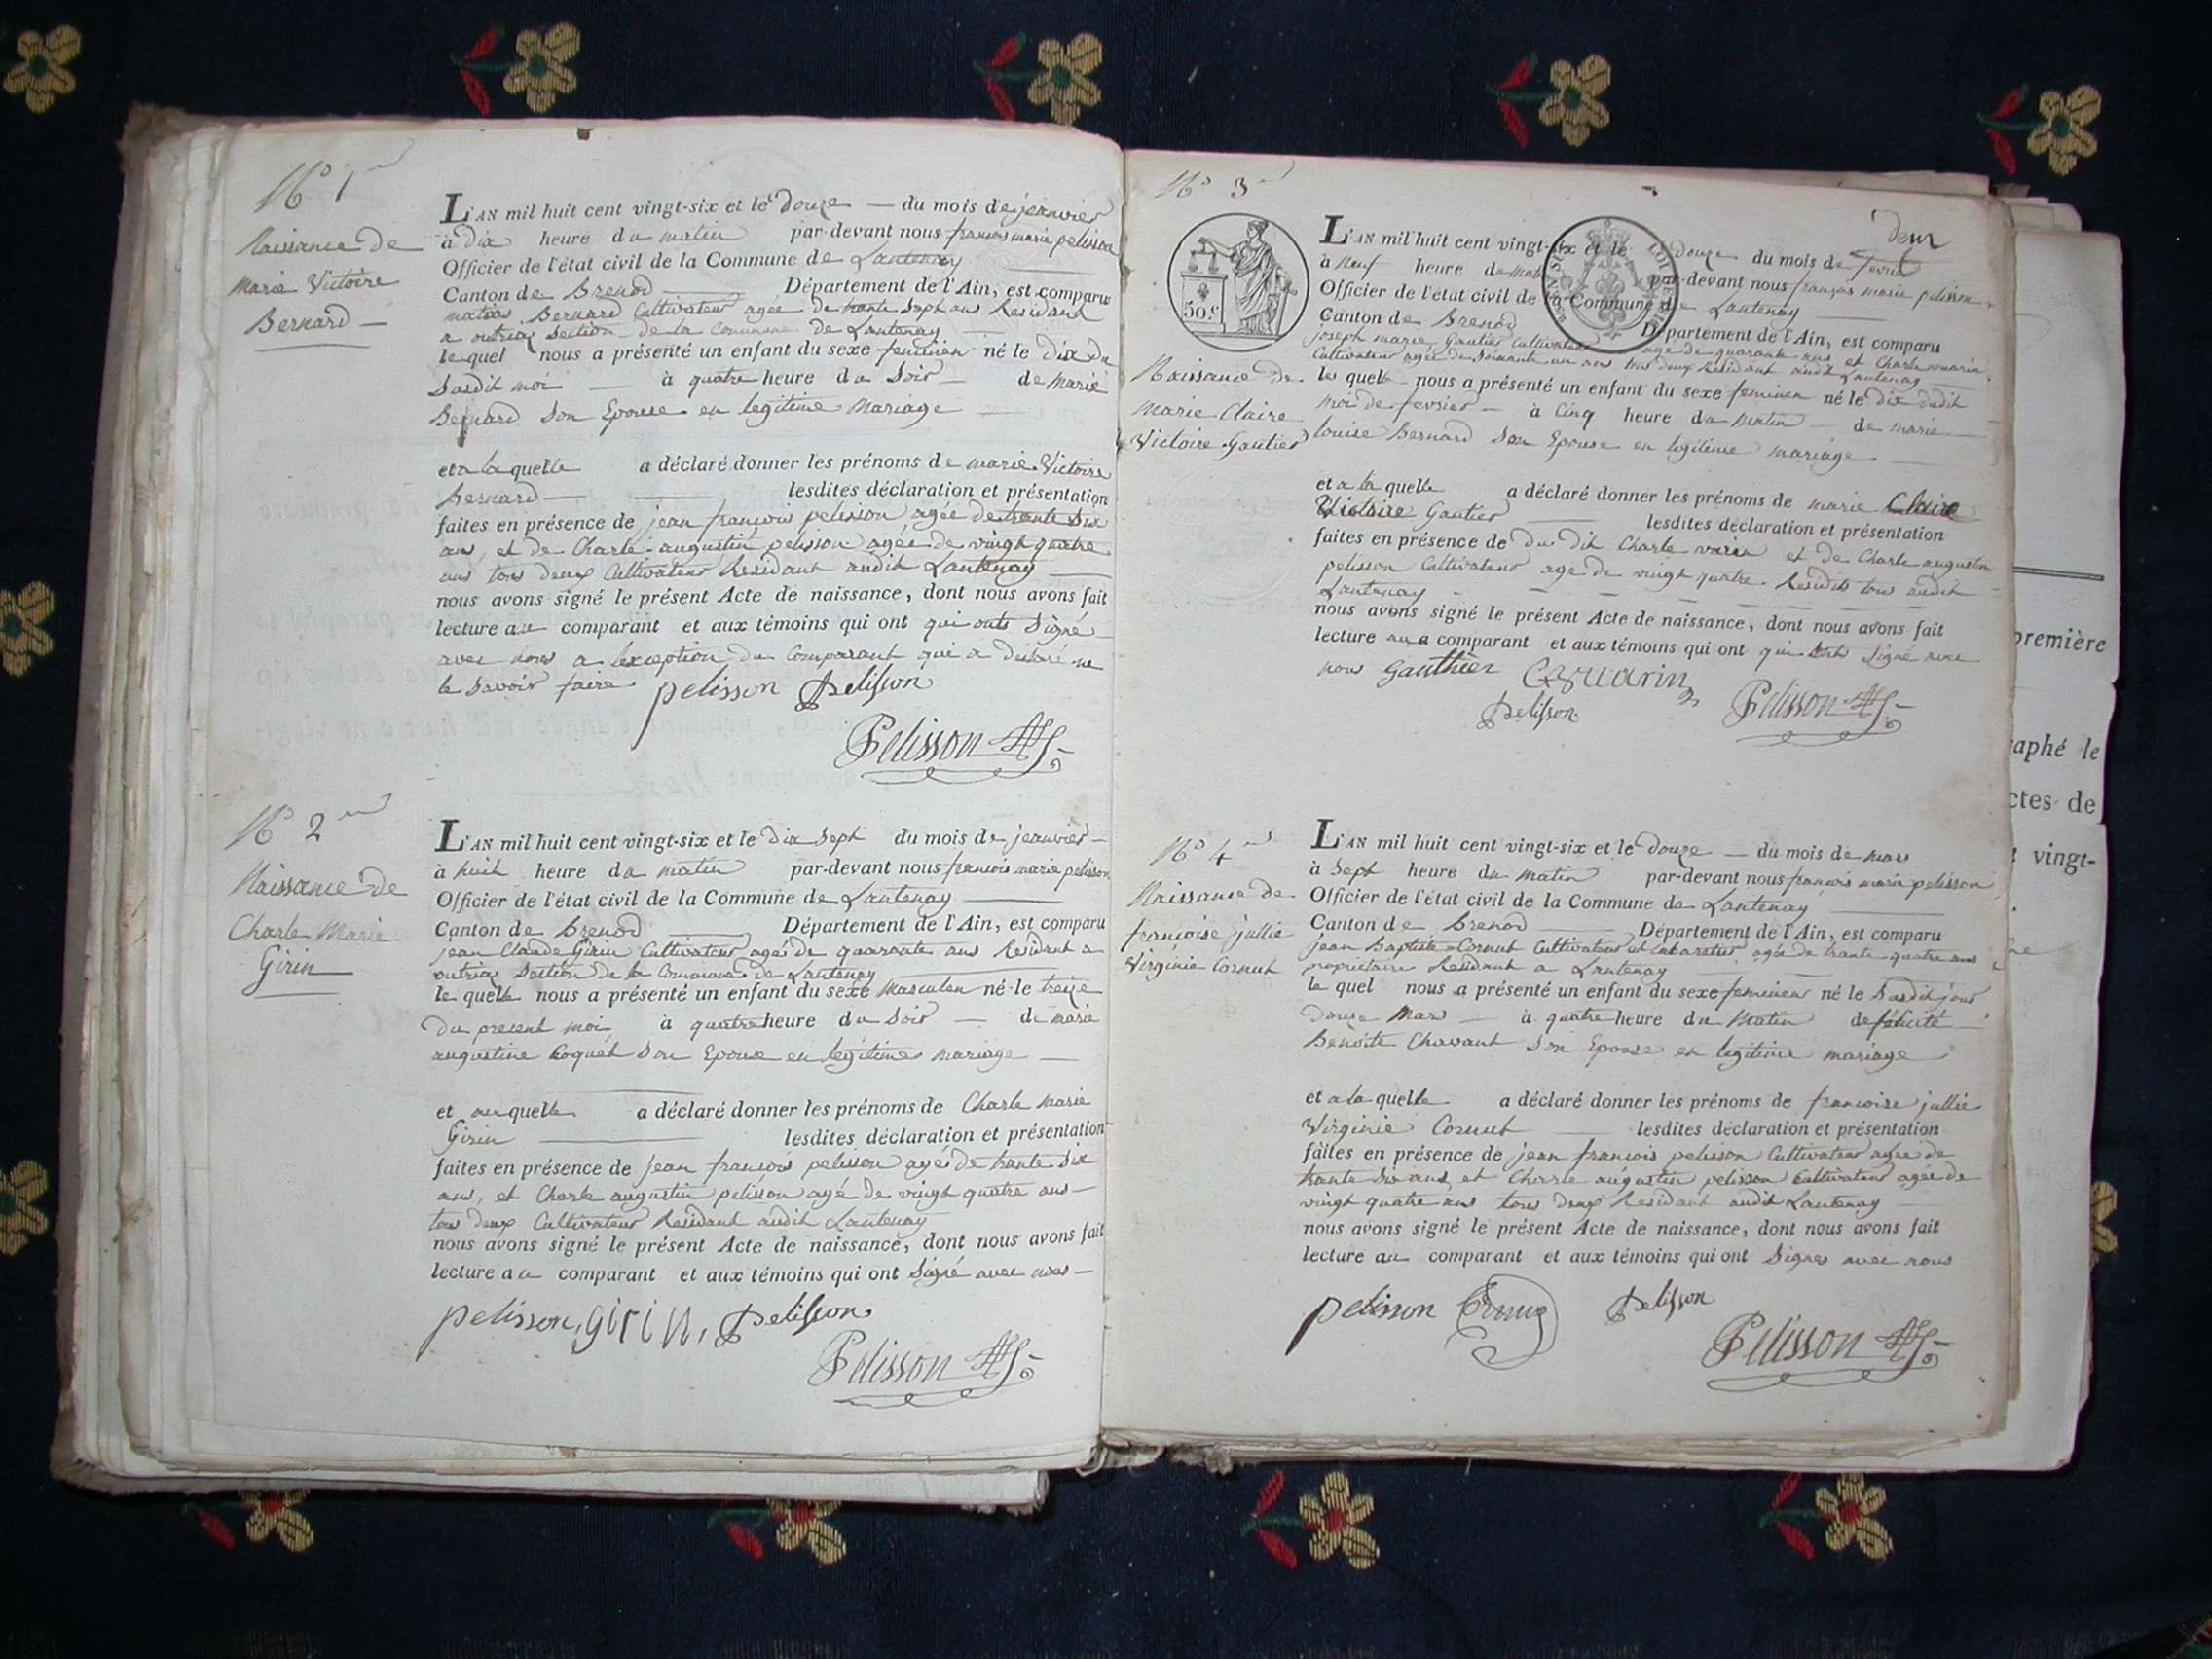 No 1er
Naissance de
Marie Victoire
Bernard —
L'AN mil huit cent vingt-six et le douze — du mois de jeanvier
à dix heure du matin par-devant nous francois marie pelisson
Officier de l'état civil de la Commune de Lantenay
Canton de Brenod Département de l'Ain, est comparu
matias Bernard Cultivateur agée de trante Sept ans Residant
a outriaz Section de la Commune de Lantenay
le quel nous a présenté un enfant du sexe feminien né le dix du
Susdit moi — à quatre heure du Soir — de marie
Bernard Son Epouse en legitime Mariage
et a la quelle a déclaré donner les prénoms de marie Victoire
Bernard — lesdites déclaration et présentation
faites en présence de jean françois pelisson agée de trante Six
ans, et de Charle augustin pelisson agée de vingt quatre
ans tous deux Cultivateur Residant audit Lantenay
nous avons signé le présent Acte de naissance, dont nous avons fait
lecture au comparant et aux témoins qui ont qui onts Signé
avec nous a lexception du Comparant qui a déclaré ne
le Savoir faire pelisson Pelisson
Pelisson
No 2me
Naissance de
Charle Marie
Girin
L'AN mil huit cent vingt-six et le dix Sept du mois de jeanvier —
à huit heure du matin par-devant nous francois marie pelisson
Officier de l'état civil de la Commune de Lantenay
Canton de Brenod Département de l'Ain, est comparu
jean Claude Girin Cultivateur agé de quarante ans Residant a
outriaz Section de la Commune de Lantenay
le quelle nous a présenté un enfant du sexe Masculen né le treize
du present moi à quatre heure du Soir — de marie
augustine Coquet Son Epouse en legitime mariage —
et au quelle a déclaré donner les prénoms de Charle marie
Girin lesdites déclaration et présentation
faites en présence de jean françois pelisson agée de trante Six
ans, et Charle augustin pelisson agé de vingt quatre ans —
tous deux Cultivateur Residant audit Lantenay
nous avons signé le présent Acte de naissance, dont nous avons fait
lecture au comparant et aux témoins qui ont Signé avec nous —
pelisson, girin, Pelisson
Pelisson
No 3
deux
50 c
Naissance de
Marie Claire
Victoire Gautier
L'AN mil huit cent vingt-six et le douze du mois de fevrier
à Neuf heure du matin par-devant nous français marie pelisson
Officier de l'état civil de la Commune de Lantenay
Canton de Brenod Département de l'Ain, est comparu
joseph marie Gautier Cultivateur age de quarante ans et Charle vuarin
Cultivateur agée de Soixante un ans tous deux Residant audit Lantenay
les quelle nous a présenté un enfant du sexe feminien né le dix dudit
moi de fevrier — à Cinq heure du Matin — de marie
louise Bernard Son Epouse en legitime mariage
et a la quelle a déclaré donner les prénoms de marie Claire
Victoire Gautier lesdites déclaration et présentation
faites en présence de du dit Charle varin et de Charle augustin
pelisson Cultivateur age de vingt quatre Residts tous audit
Lantenay
nous avons signé le présent Acte de naissance, dont nous avons fait
lecture aux comparant et aux témoins qui ont qui onts Signé avec
nous Gauthier vuarin
Pelisson Pelisson
No 4me
Naissance de
françoise jullie
Virginie Cornut
L'AN mil huit cent vingt-six et le douze — du mois de mars
à Sept heure du matin par-devant nous françois marie pelisson
Officier de l'état civil de la Commune de Lantenay
Canton de Brenod Département de l'Ain, est comparu
jean Baptiste Cornut Cultivateur et Cabaretier agée de trante quatre ans
propriétaire Residant a Lantenay
le quel nous a présenté un enfant du sexe feminien né le Susdit jour
douze Mars — à quatre heure du Matin de félicité
Benoite Chavant Son Epouse en legitime mariage
et a la quelle a déclaré donner les prénoms de francoise jullie
Virginie Cornut lesdites déclaration et présentation
faites en présence de jean francois pelisson Cultivateur agée de
trante Six ans et Charle augustin pelisson Cultivateur agée de
vingt quatre ans tous deux Residant audit Lantenay
nous avons signé le présent Acte de naissance, dont nous avons fait
lecture au comparant et aux témoins qui ont Signer avec nous
pelisson Pelisson
Pelisson
première
aphé le
ctes de
vingt-